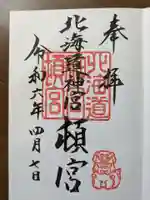 奉拝
北海道
北海道神宮
頓宮
頓宮
令和六年四月七日